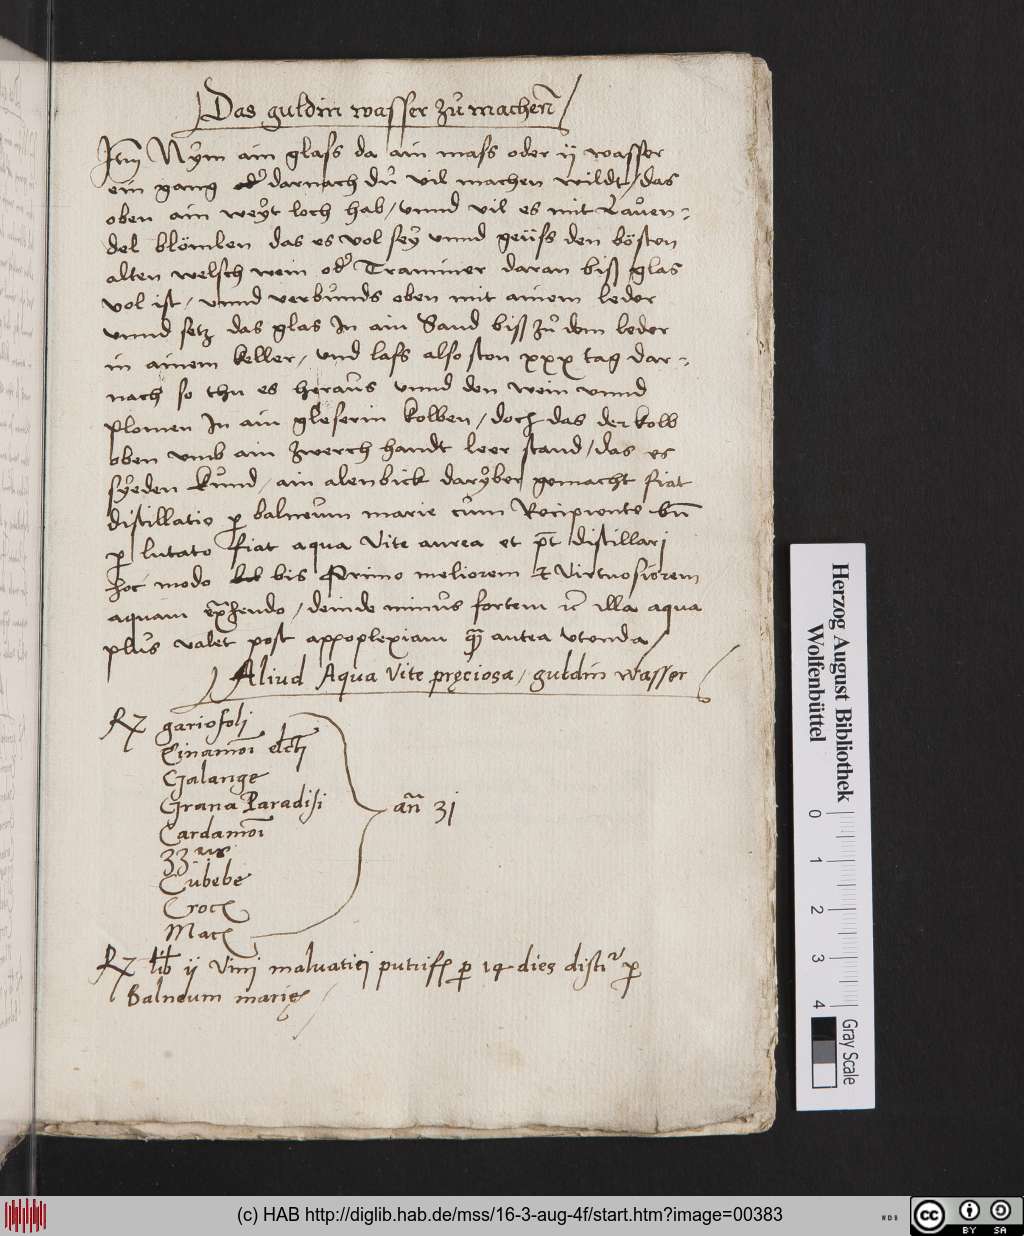 Das guldin wasser zů machenn
Itm Nym ain glass da ain mass oder ij wasser
ein gang odr darnach du vil machen wildt / das
oben ain weyt loch hab / vnnd vil es mit Lauen=
del blömlen das es vol sey vnnd geüss den bösten
alten welsch wein odr Traminer daran biß glas
vol ist / vnnd verbunds oben mit ainem leder
vnnd setz das glas In ain Sand biß zů dem leder
in ainem keller / vnd lass also sten xxx tag dar=
nach so thu es heraus vnnd den wein vnnd
plomen In ain gleserin kolben / doch das der kolb
oben vmb ain zwerch handt leer stand / das es
syeden kund / ain alenbick daryber gemacht fiat
distillatio p balneum marie cum Recipiente bn̄
p lutato fiat aqua vite aurea et p̄t distillari
hoc modo bis Primo meliorem et virtuosiorem
aquam / deinde minus fortem illa aqua
plus valet post appoplexiam antea vtenda /
Aliud Aqua vite pręciosa / guldin wasser
℞ gariofoli
Cinamoī elcti
Galange
Grana Paradisi
Cardamoī
zz
Cubebe
Croci
Macis
an̄ ʒj
℞ lib ij vini maluatici putrif p 14 dies disti p
Balneum marię /
Herzog August Bibliothek
Wolfenbüttel
0 1 2 3 4
Gray Scale
(c) HAB http://diglib.hab.de/mss/16-3-aug-4f/start.htm?image=00383
WDB
cc BY SA